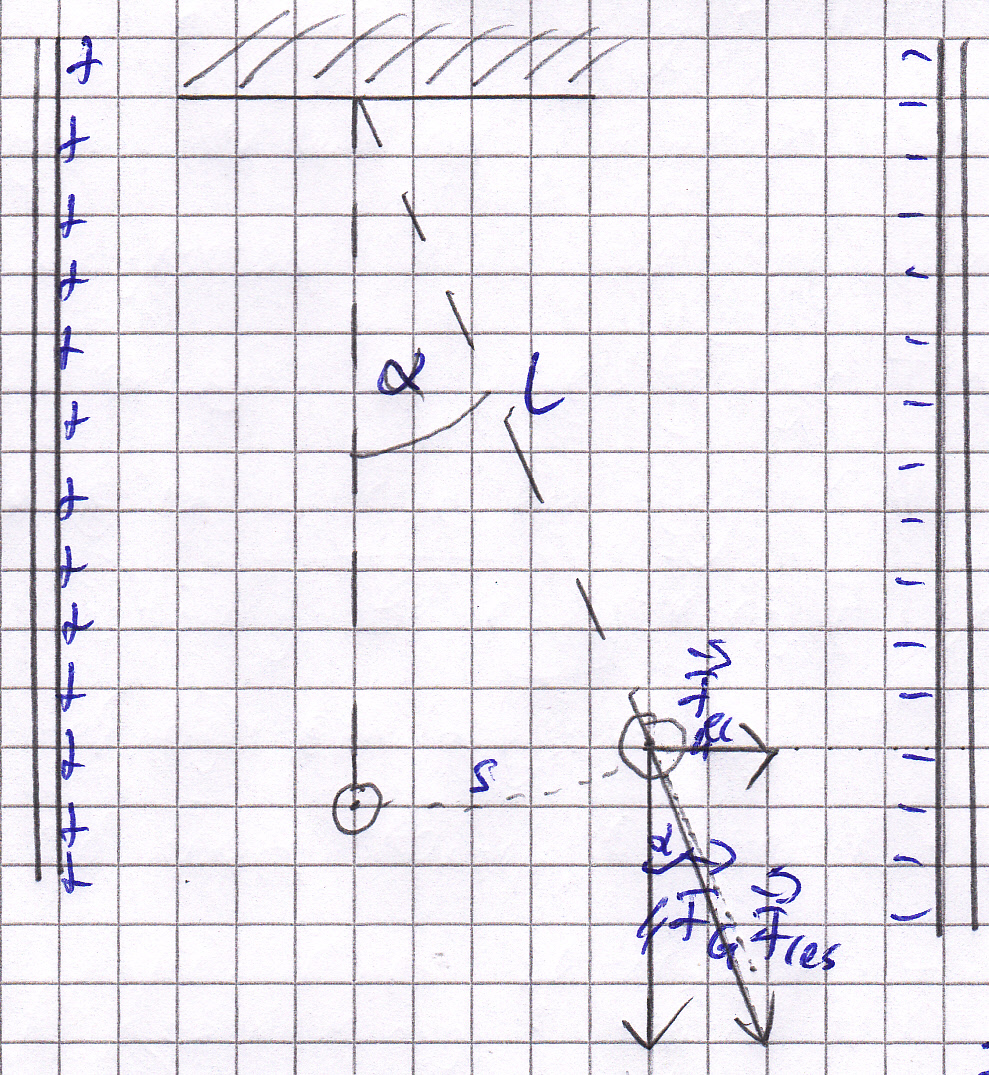 + −
+ −
+ −
+ −
+ −
α l
+ −
+ −
+ −
+ −
+ −
F⃗el
+ −
s
+ −
+ −
α
+ −
F⃗G F⃗res
−